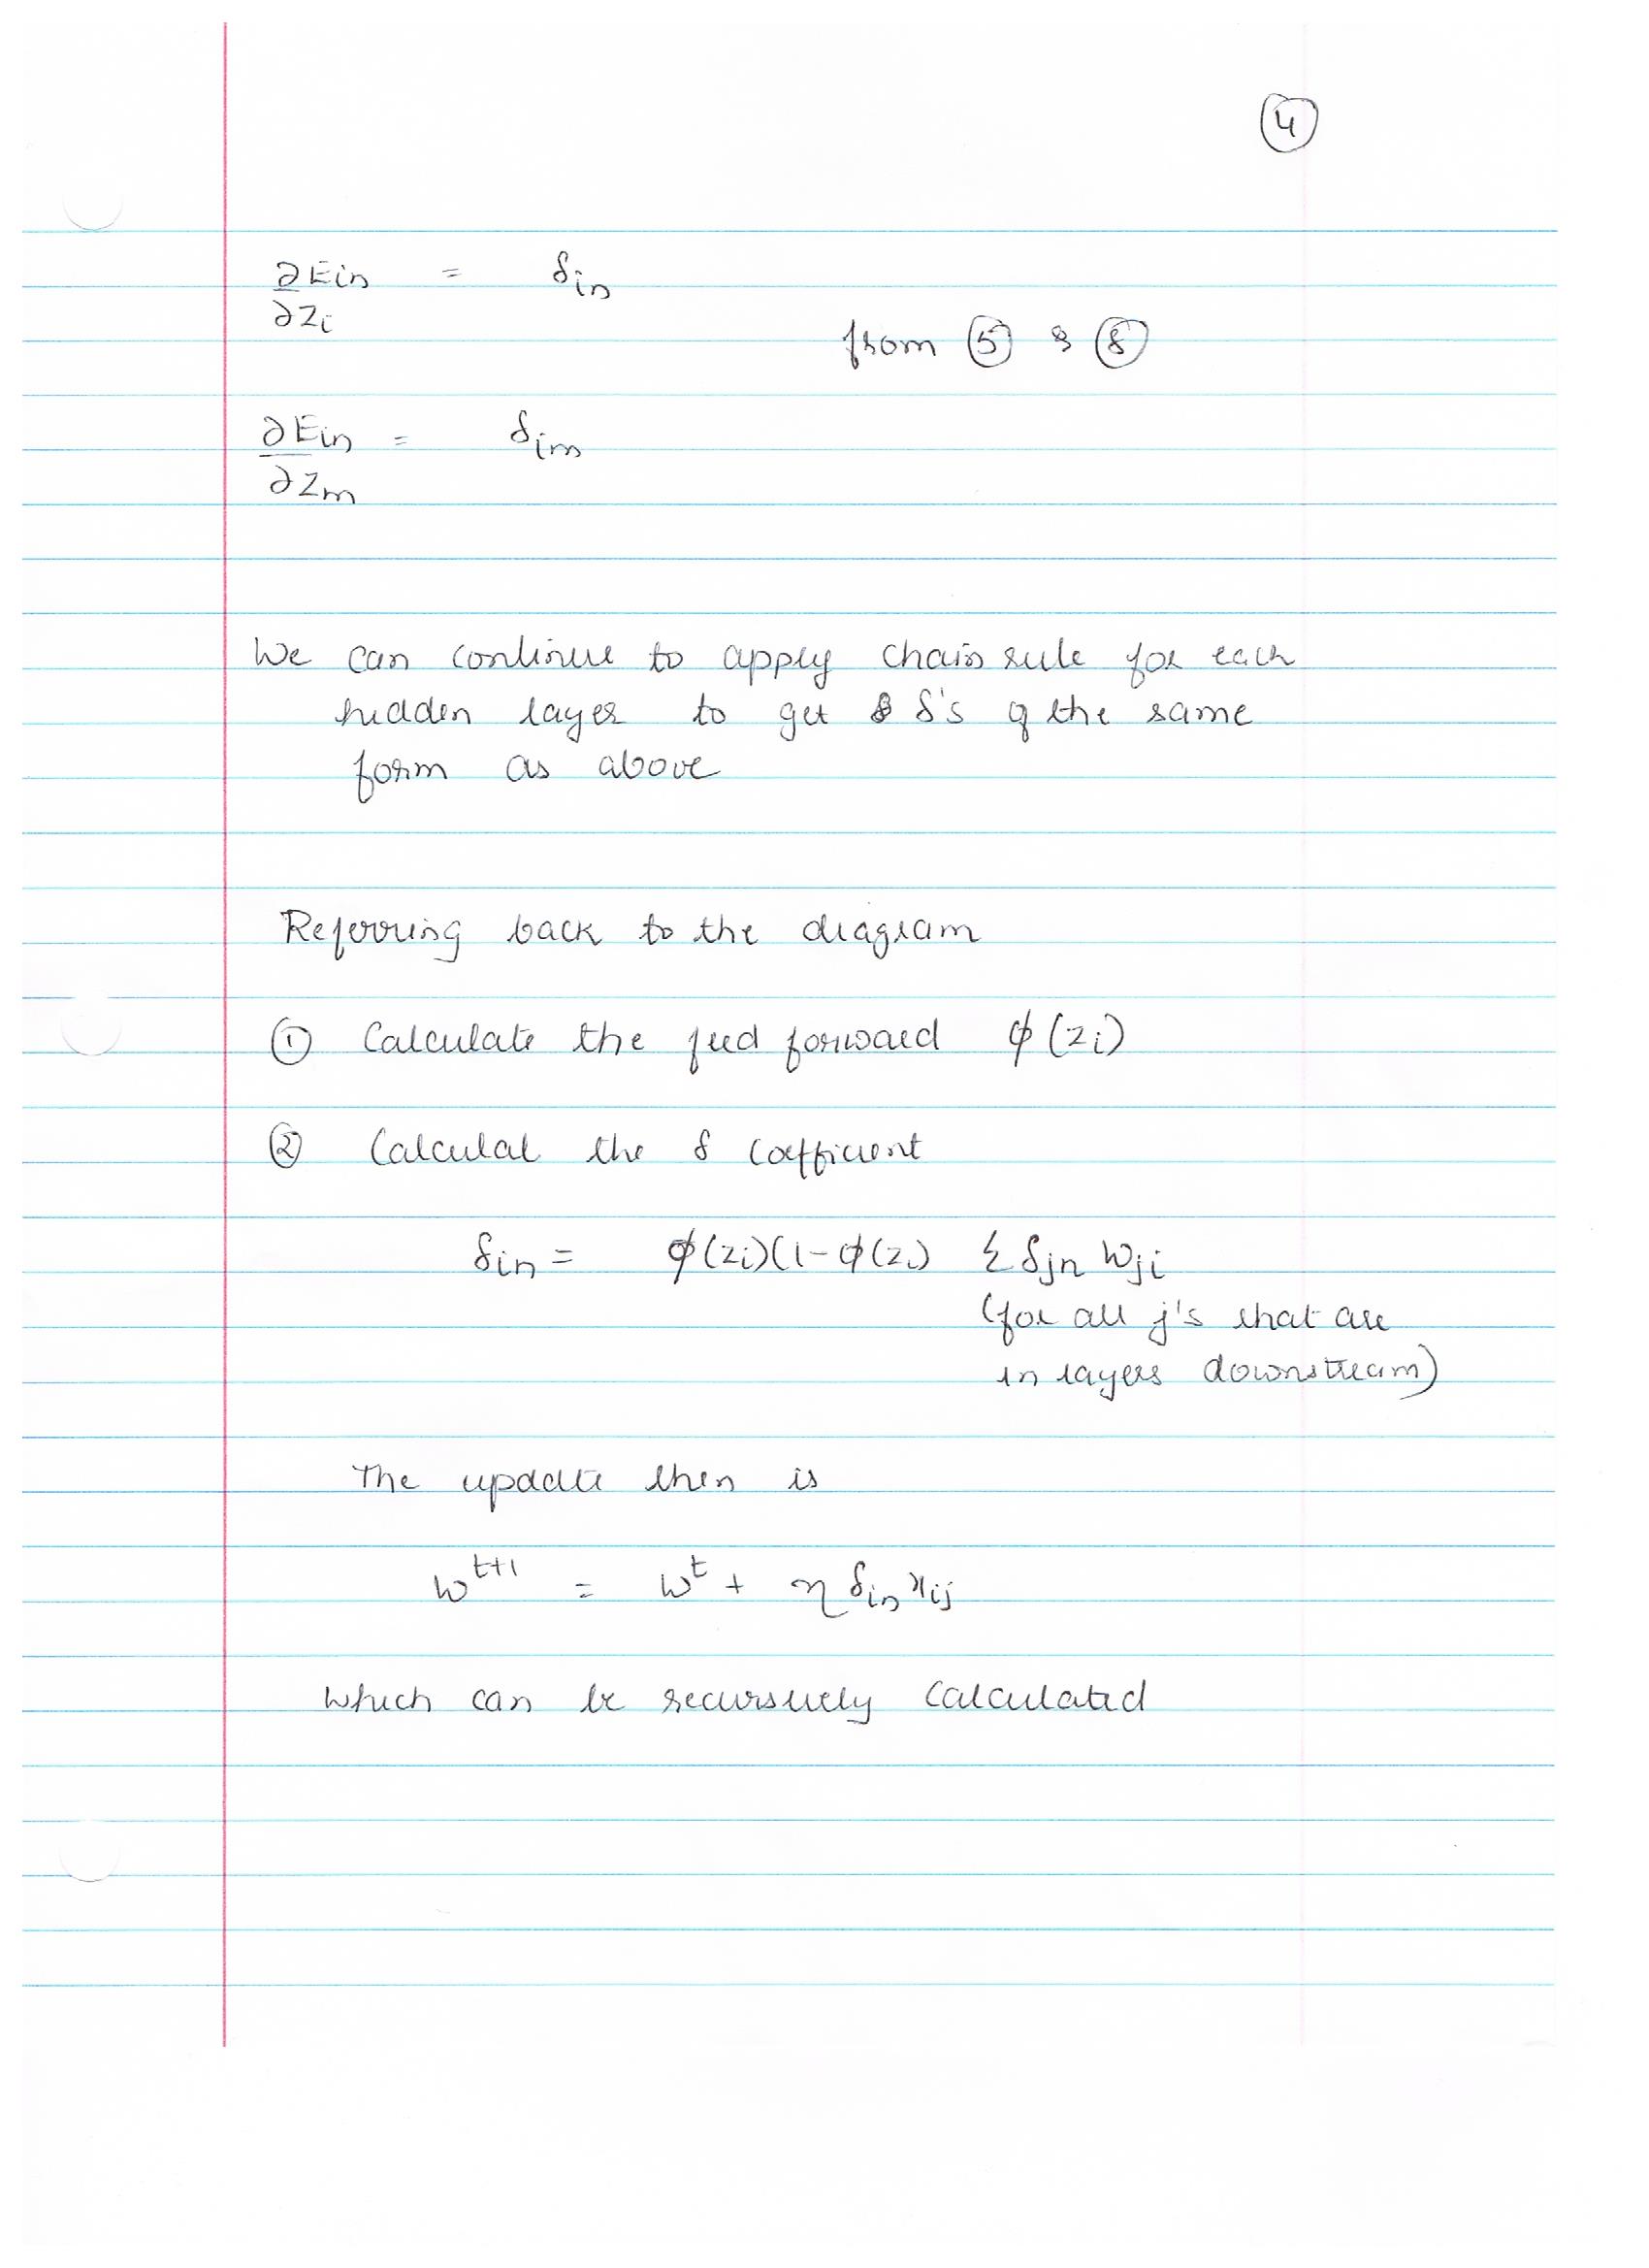 4
∂Ein = δin
∂zi
from 5 & 8
∂Ein = δim
∂zm
We can continue to apply chain rule for each
hidden layer to get δ's of the same
form as above
Referring back to the diagram
1 Calculate the feed forward φ(zi)
2 Calculat the δ coefficient
δin = φ(zi)(1-φ(zi) Σ δjn wji
(for all j's that are
in layers downstream)
The update then is
w^t+1 = w^t + η δin xij
which can be recursively calculated